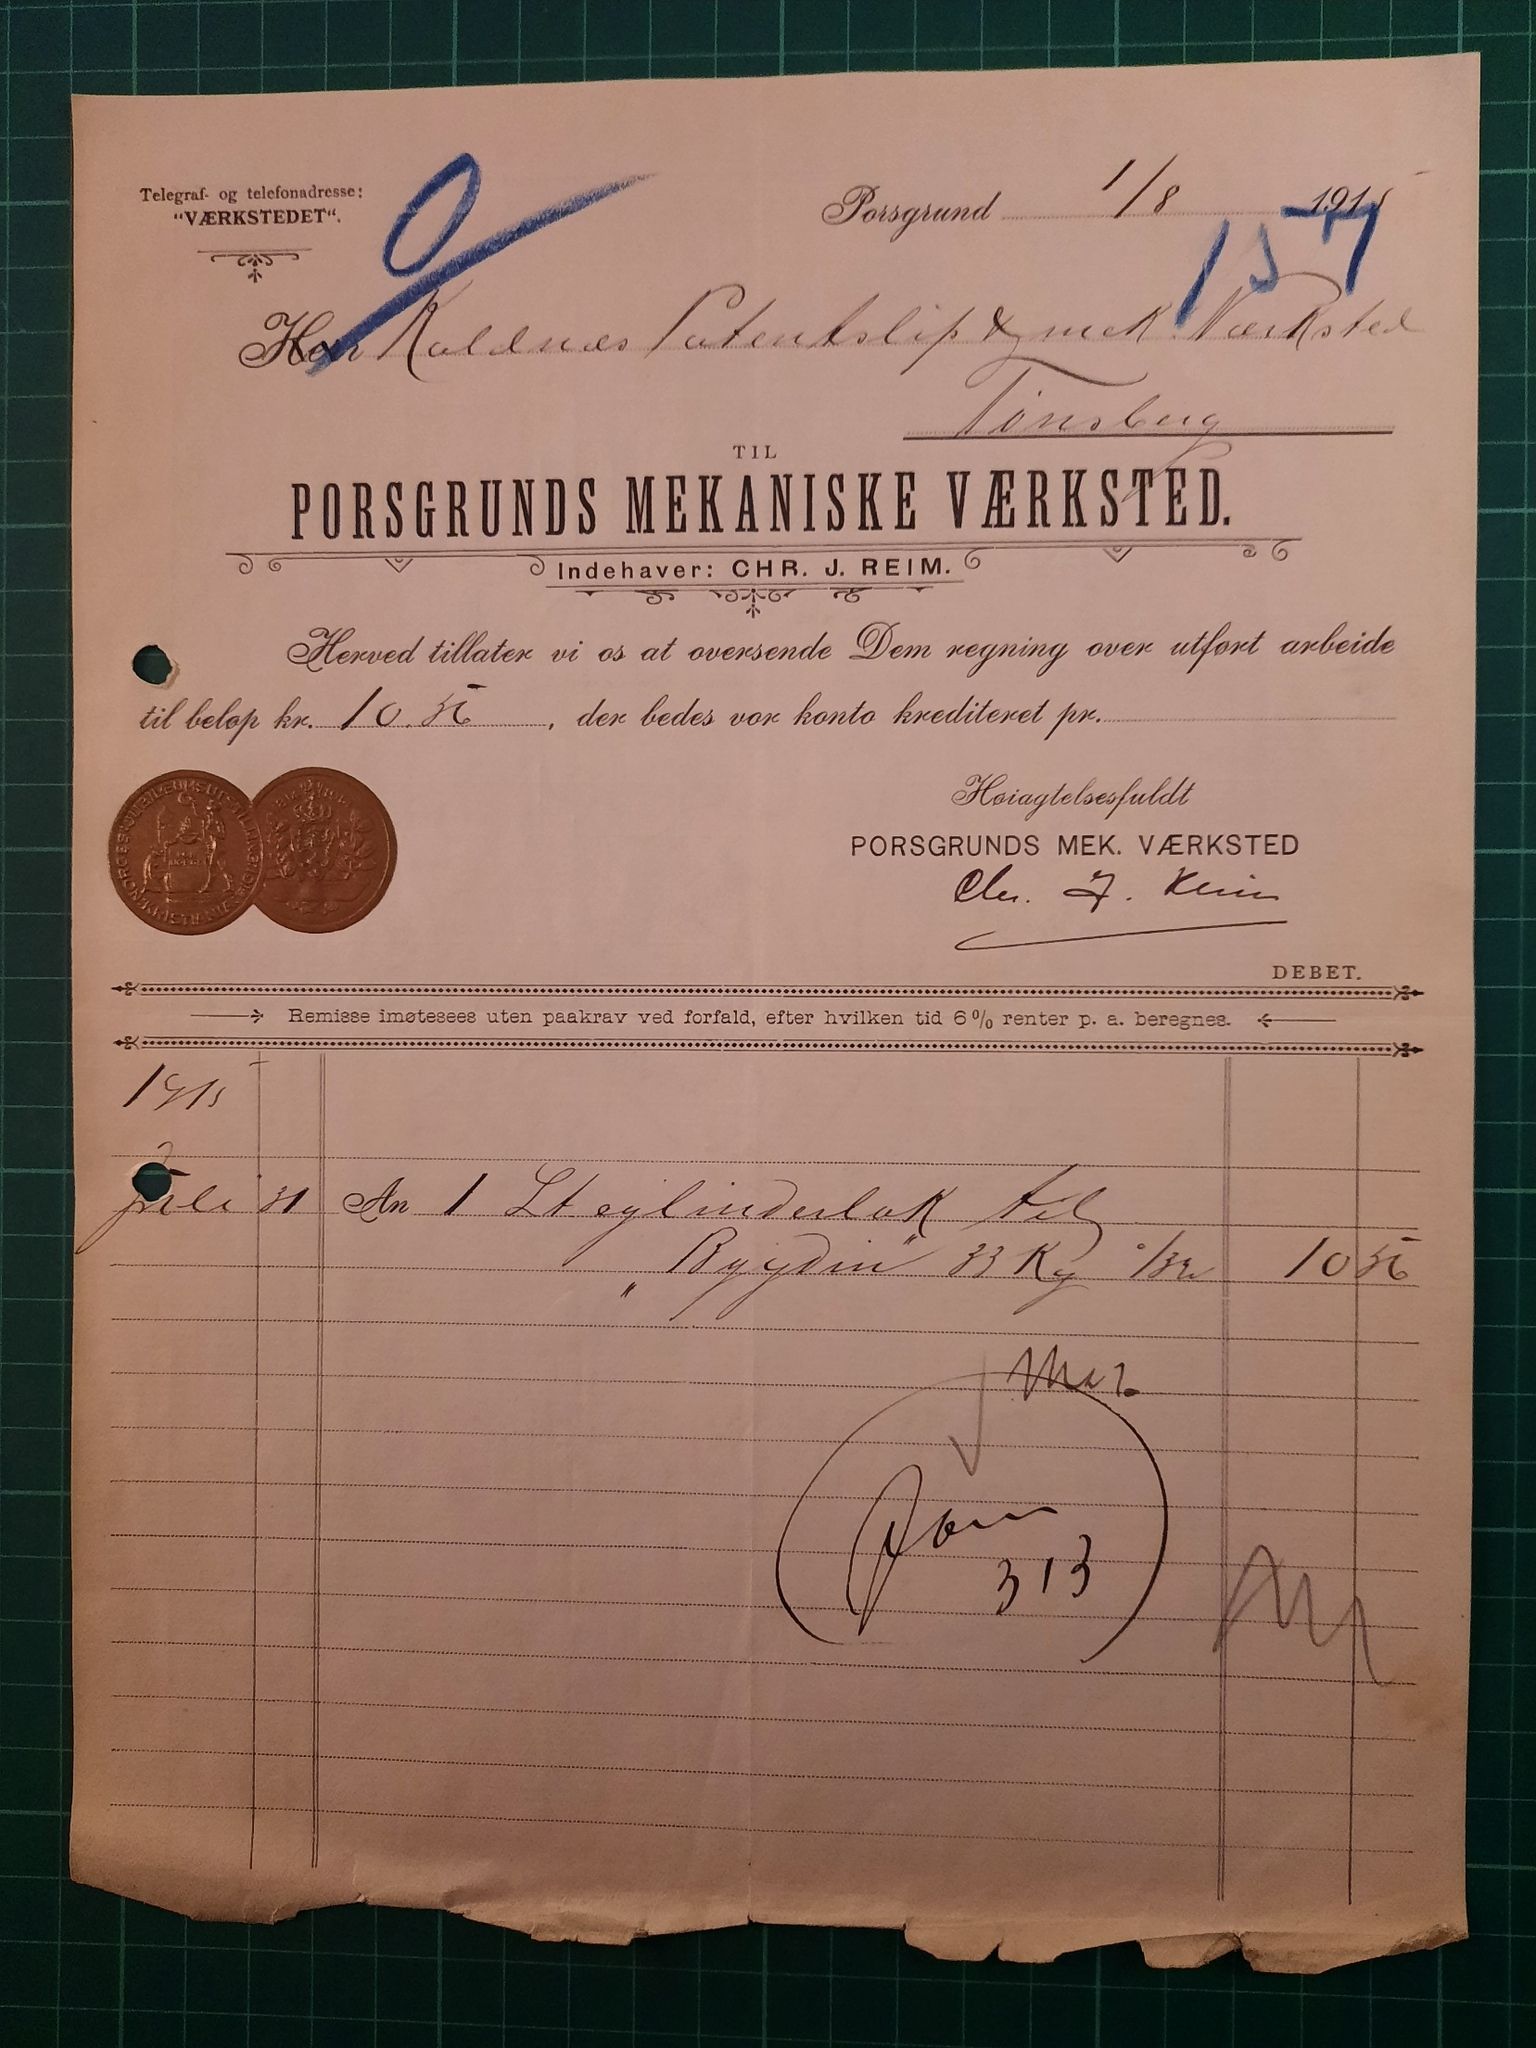 Telegraf- og telefonadresse:
"VÆRKSTEDET".
Porsgrund 1/8 1915
157
Herr Kaldnæs Patentslip & mek. Værksted
Tønsberg
TIL
PORSGRUNDS MEKANISKE VÆRKSTED.
Indehaver: CHR. J. REIM.
Herved tillater vi os at oversende Dem regning over utført arbeide
til beløp kr. 10.56, der bedes vor konto krediteret pr.
Høiagtelsesfuldt
PORSGRUNDS MEK. VÆRKSTED
Chr. J. Reim
DEBET.
Remisse imøtesees uten paakrav ved forfald, efter hvilken tid 6% renter p. a. beregnes.
1915
Juli 31 An 1 St cylinderlok til
"Bygdin" 33 Kg 10 56
313